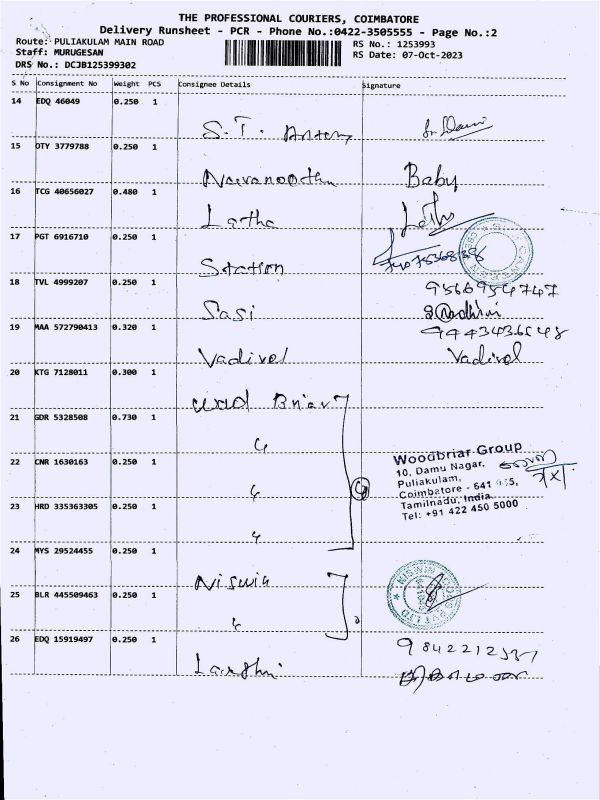 THE PROFESSIONAL COURIERS, COIMBATORE
Delivery Runsheet - PCR - Phone No.:0422-3505555 - Page No.:2
Route: PULIAKULAM MAIN ROAD
RS No.: 1253993
Staff: MURUGESAN
RS Date: 07-Oct-2023
DRS No.: DCJB125399302
S No Consignment No Weight PCS Consignee Details Signature
14 EDQ 46049 0.250 1
S.T. Antony
15 OTY 3779788 0.250 1
Baby
16 TCG 40656027 0.480 1
Latha
17 PGT 6916710 0.250 1
Station
18 TVL 4999207 0.250 1
Sasi
19 MAA 572790413 0.320 1
Vadivel Vadivel
20 KTG 7128011 0.300 1
21 GDR 5328508 0.730 1
22 CNR 1630163 0.250 1
Woodbriar Group
10, Damu Nagar,
Puliakulam,
Coimbatore - 641
Tamilnadu, India.
Tel: +91 422 450 5000
23 HRD 335363305 0.250 1
24 MYS 29524455 0.250 1
25 BLR 445509463 0.250 1
26 EDQ 15919497 0.250 1